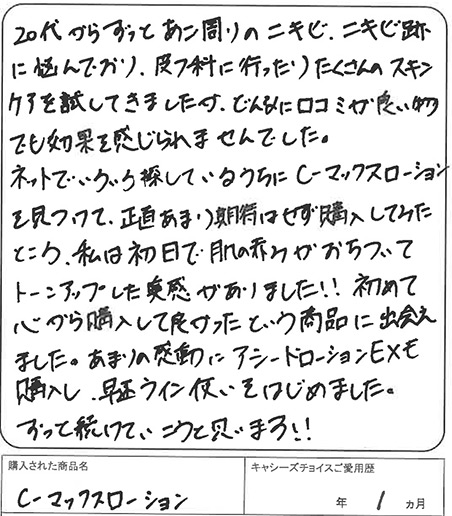 20代からずっとあご周りのニキビ、ニキビ跡
に悩んでおり、皮フ科に行ったりたくさんのスキン
ケアを試してきましたが、どんなに口コミが良い物
でも効果を感じられませんでした。
ネットでいろいろ探しているうちにC-マックスローション
を見つけて、正直あまり期待はせず購入してみた
ところ、私は初日で肌の赤みがおちついて
トーンアップした実感がありました!! 初めて
心から購入して良かったという商品に出会え
ました。あまりの感動にアシードローションEXも
購入し、早速ライン使いをはじめました。
ずっと続けていこうと思います!!
購入された商品名
C-マックスローション
キャシーズチョイスご愛用歴
年 1 ヵ月